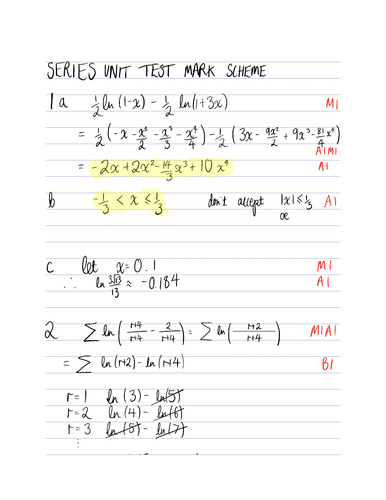 SERIES UNIT TEST MARK SCHEME
1a ½ln(1-x) - ½ ln(1+3x) M1
= ½(-x - x²/2 - x³/3 - x⁴/4) - ½(3x - 9x²/2 + 9x³ - 81x⁴/4)
A1M1
= -2x + 2x² - 14/3 x³ + 10x⁴ A1
b -⅓ < x ≤ ⅓ don't accept |x| ≤ ⅓ A1
oe
c let x = 0.1 M1
∴ ln 3√13/13 ≈ -0.184 A1
2 ∑ ln(r+4/r+4 - 2/r+4) = ∑ ln(r+2/r+4) M1A1
= ∑ ln(r+2) - ln(r+4) B1
r=1 ln(3) - ln(5)
r=2 ln(4) - ln(6)
r=3 ln(5) - ln(7)
⋮